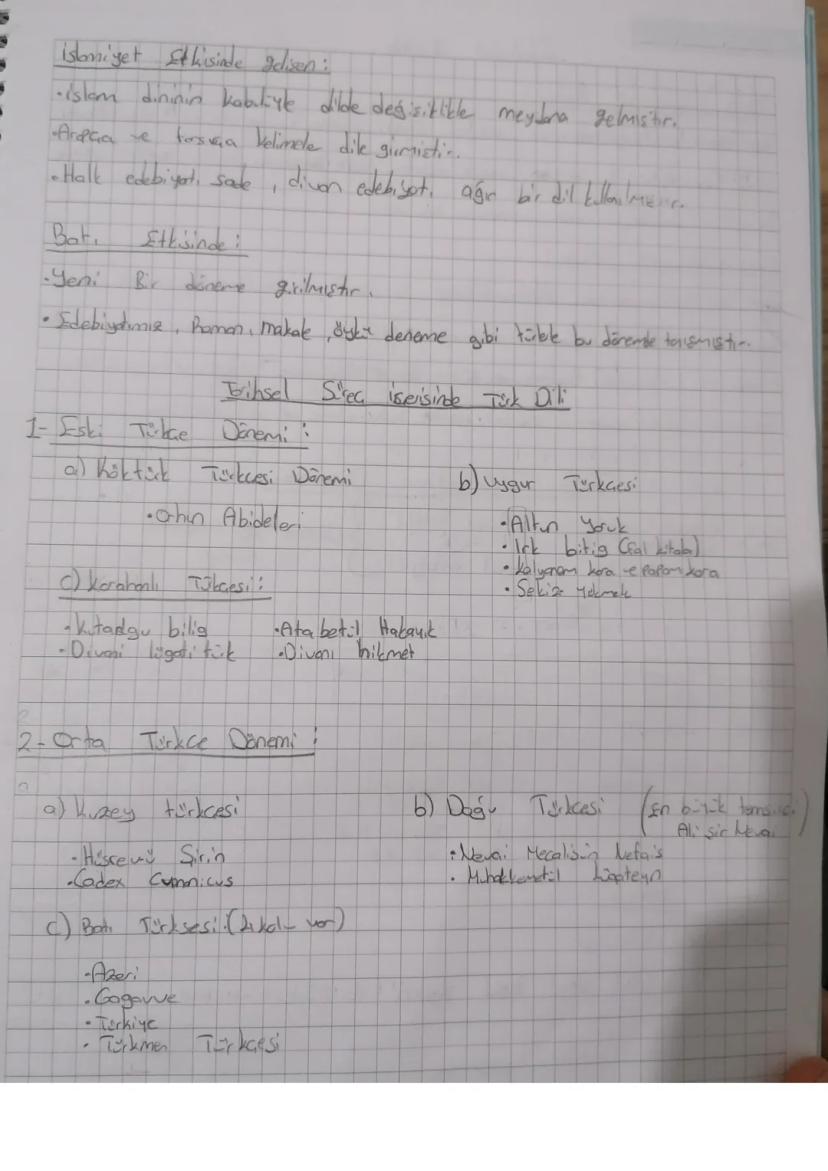 İslamiyet Etkisinde gelişen:
• İslam dininin kabulüyle dilde değişiklikle meydana gelmiştir.
• Arapça ve farsça kelimele dile girmiştir.
• Halk edebiyatı sade, divan edebiyatı ağır bir dil kullanılmıştır.
Batı Etkisinde:
• Yeni Bir döneme girilmiştir.
• Edebiyatımız, Roman, makale, öykü deneme gibi türlele bu dönemde tanışmıştır.
Tarihsel Süreç içerisinde Türk Dili
1- Eski Türkçe Dönemi:
a) Köktürk Türkçesi Dönemi
b) Uygur Türkçesi
• Orhun Abideleri
• Altun Yaruk
• Irk bitig (fal kitabı)
• Kalyanam kara ve Papam kara
• Sekiz Yükmek
c) Karahanlı Türkçesi:
• Kutadgu bilig
• Atabetül Hakayık
• Divanı lügati türk
• Divanı hikmet
2- Orta Türkçe Dönemi:
a) Kuzey türkçesi
b) Doğu Türkçesi (En büyük temsilci Ali şir Nevai)
• Hüsrevü Şirin
• Nevai Mecalisün Nefais
• Codex Cumnicus
• Muhakemetül Lügateyn
c) Batı Türksesi (2 kol- var)
• Azeri
• Gagavue
• Türkiye
• Türkmen Türkçesi